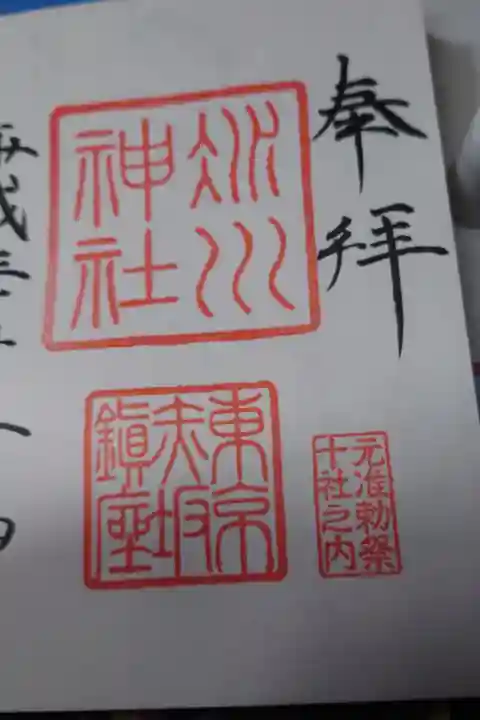 奉拝
氷川
神社
東京
赤坂
鎮座
元准勅祭
十社之内
平成